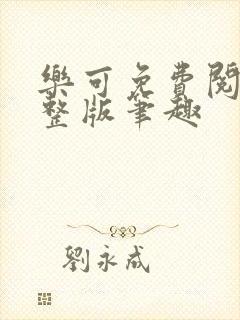 樂可免費閱
整版筆趣
劉永成